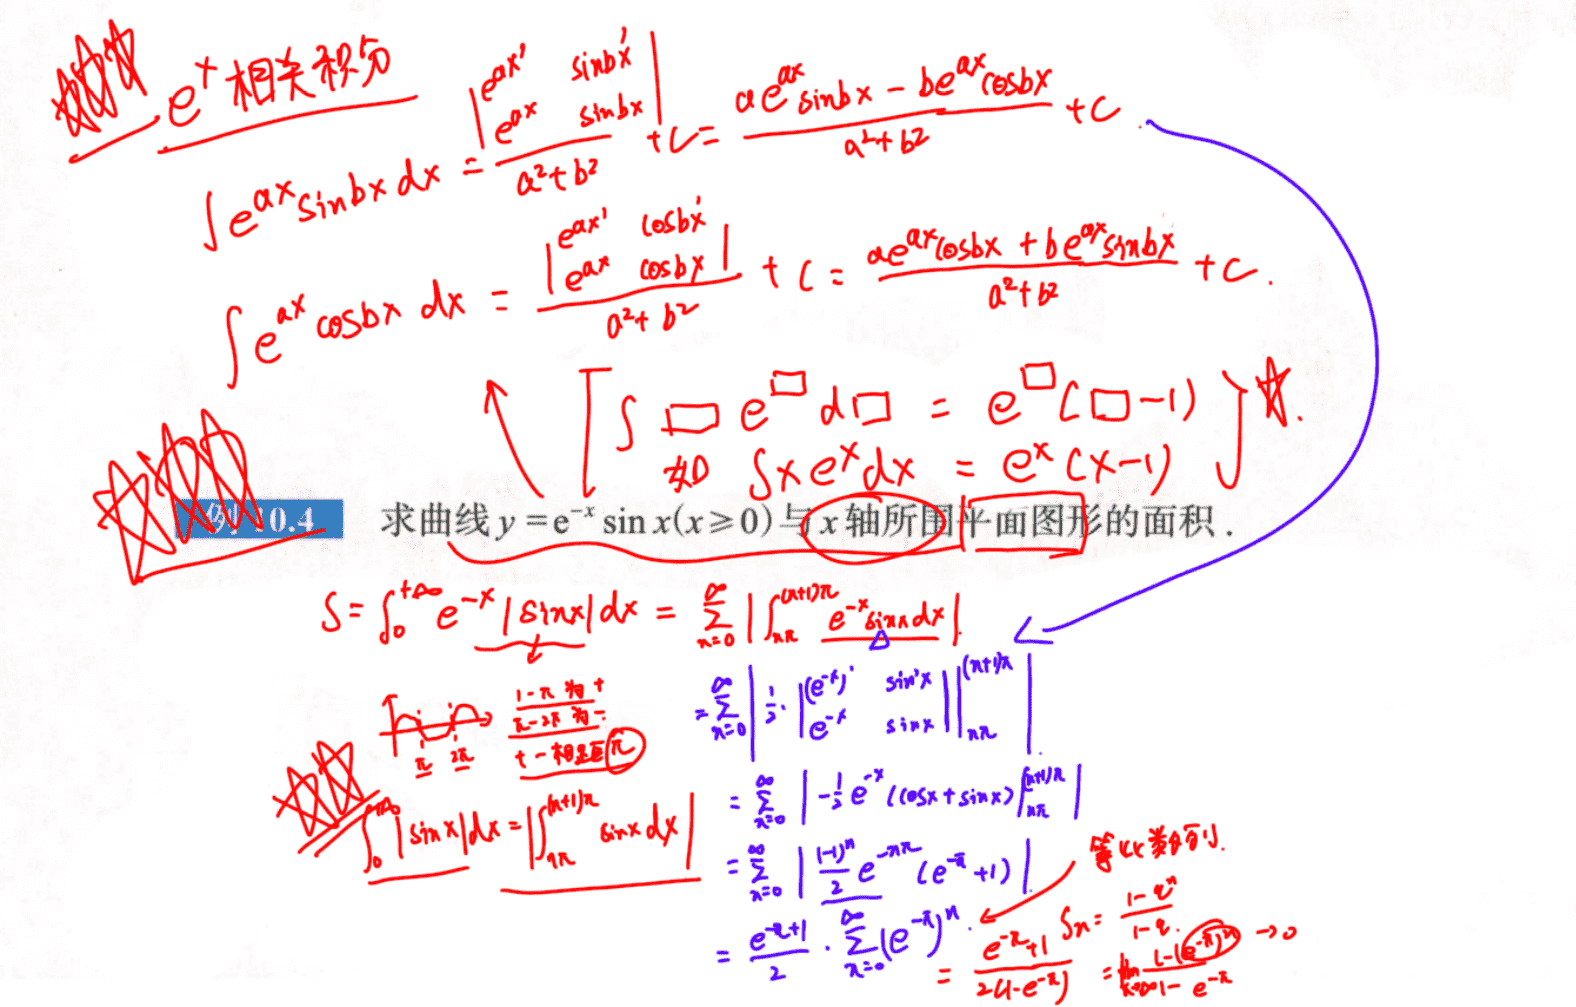 e^x 相关积分
∫e^{ax} sinbx dx = |e^{ax}' sinbx' ; e^{ax} sinbx| / (a²+b²) + C = (ae^{ax} sinbx - be^{ax} cosbx) / (a²+b²) + C
∫e^{ax} cosbx dx = |e^{ax}' cosbx' ; e^{ax} cosbx| / (a²+b²) + C = (ae^{ax} cosbx + be^{ax} sinbx) / (a²+b²) + C.
[∫ □ e^□ d□ = e^□ (□-1)
如 ∫x e^x dx = e^x (x-1)] ☆.
例10.4 求曲线 y = e^{-x} sin x (x ≥ 0) 与 x 轴所围平面图形的面积.
S = ∫_0^{+∞} e^{-x} |sinx| dx = ∑_{n=0}^∞ |∫_{nπ}^{(n+1)π} e^{-x} sinx dx|.
= ∑_{n=0}^∞ |1/2 · |(e^{-x})' sin'x ; e^{-x} sinx| |_{nπ}^{(n+1)π}|.
π 2π
1-π 为+
π-2π 为-
+ - 相距π
= ∑_{n=0}^∞ |-1/2 e^{-x} (cosx + sinx)|_{nπ}^{(n+1)π}|
∫_0^{+∞} |sinx| dx = |∫_{nπ}^{(n+1)π} sinx dx|
= ∑_{n=0}^∞ |(-1)^n / 2 e^{-nπ} (e^{-π} + 1)|.
等比数列.
= (e^{-π}+1)/2 · ∑_{n=0}^∞ (e^{-π})^n.
Sn = (1-q^n)/(1-q).
= (e^{-π}+1) / 2(1-e^{-π})
= lim_{n→∞} (1-(e^{-π})^n) / (1-e^{-π}) → 0